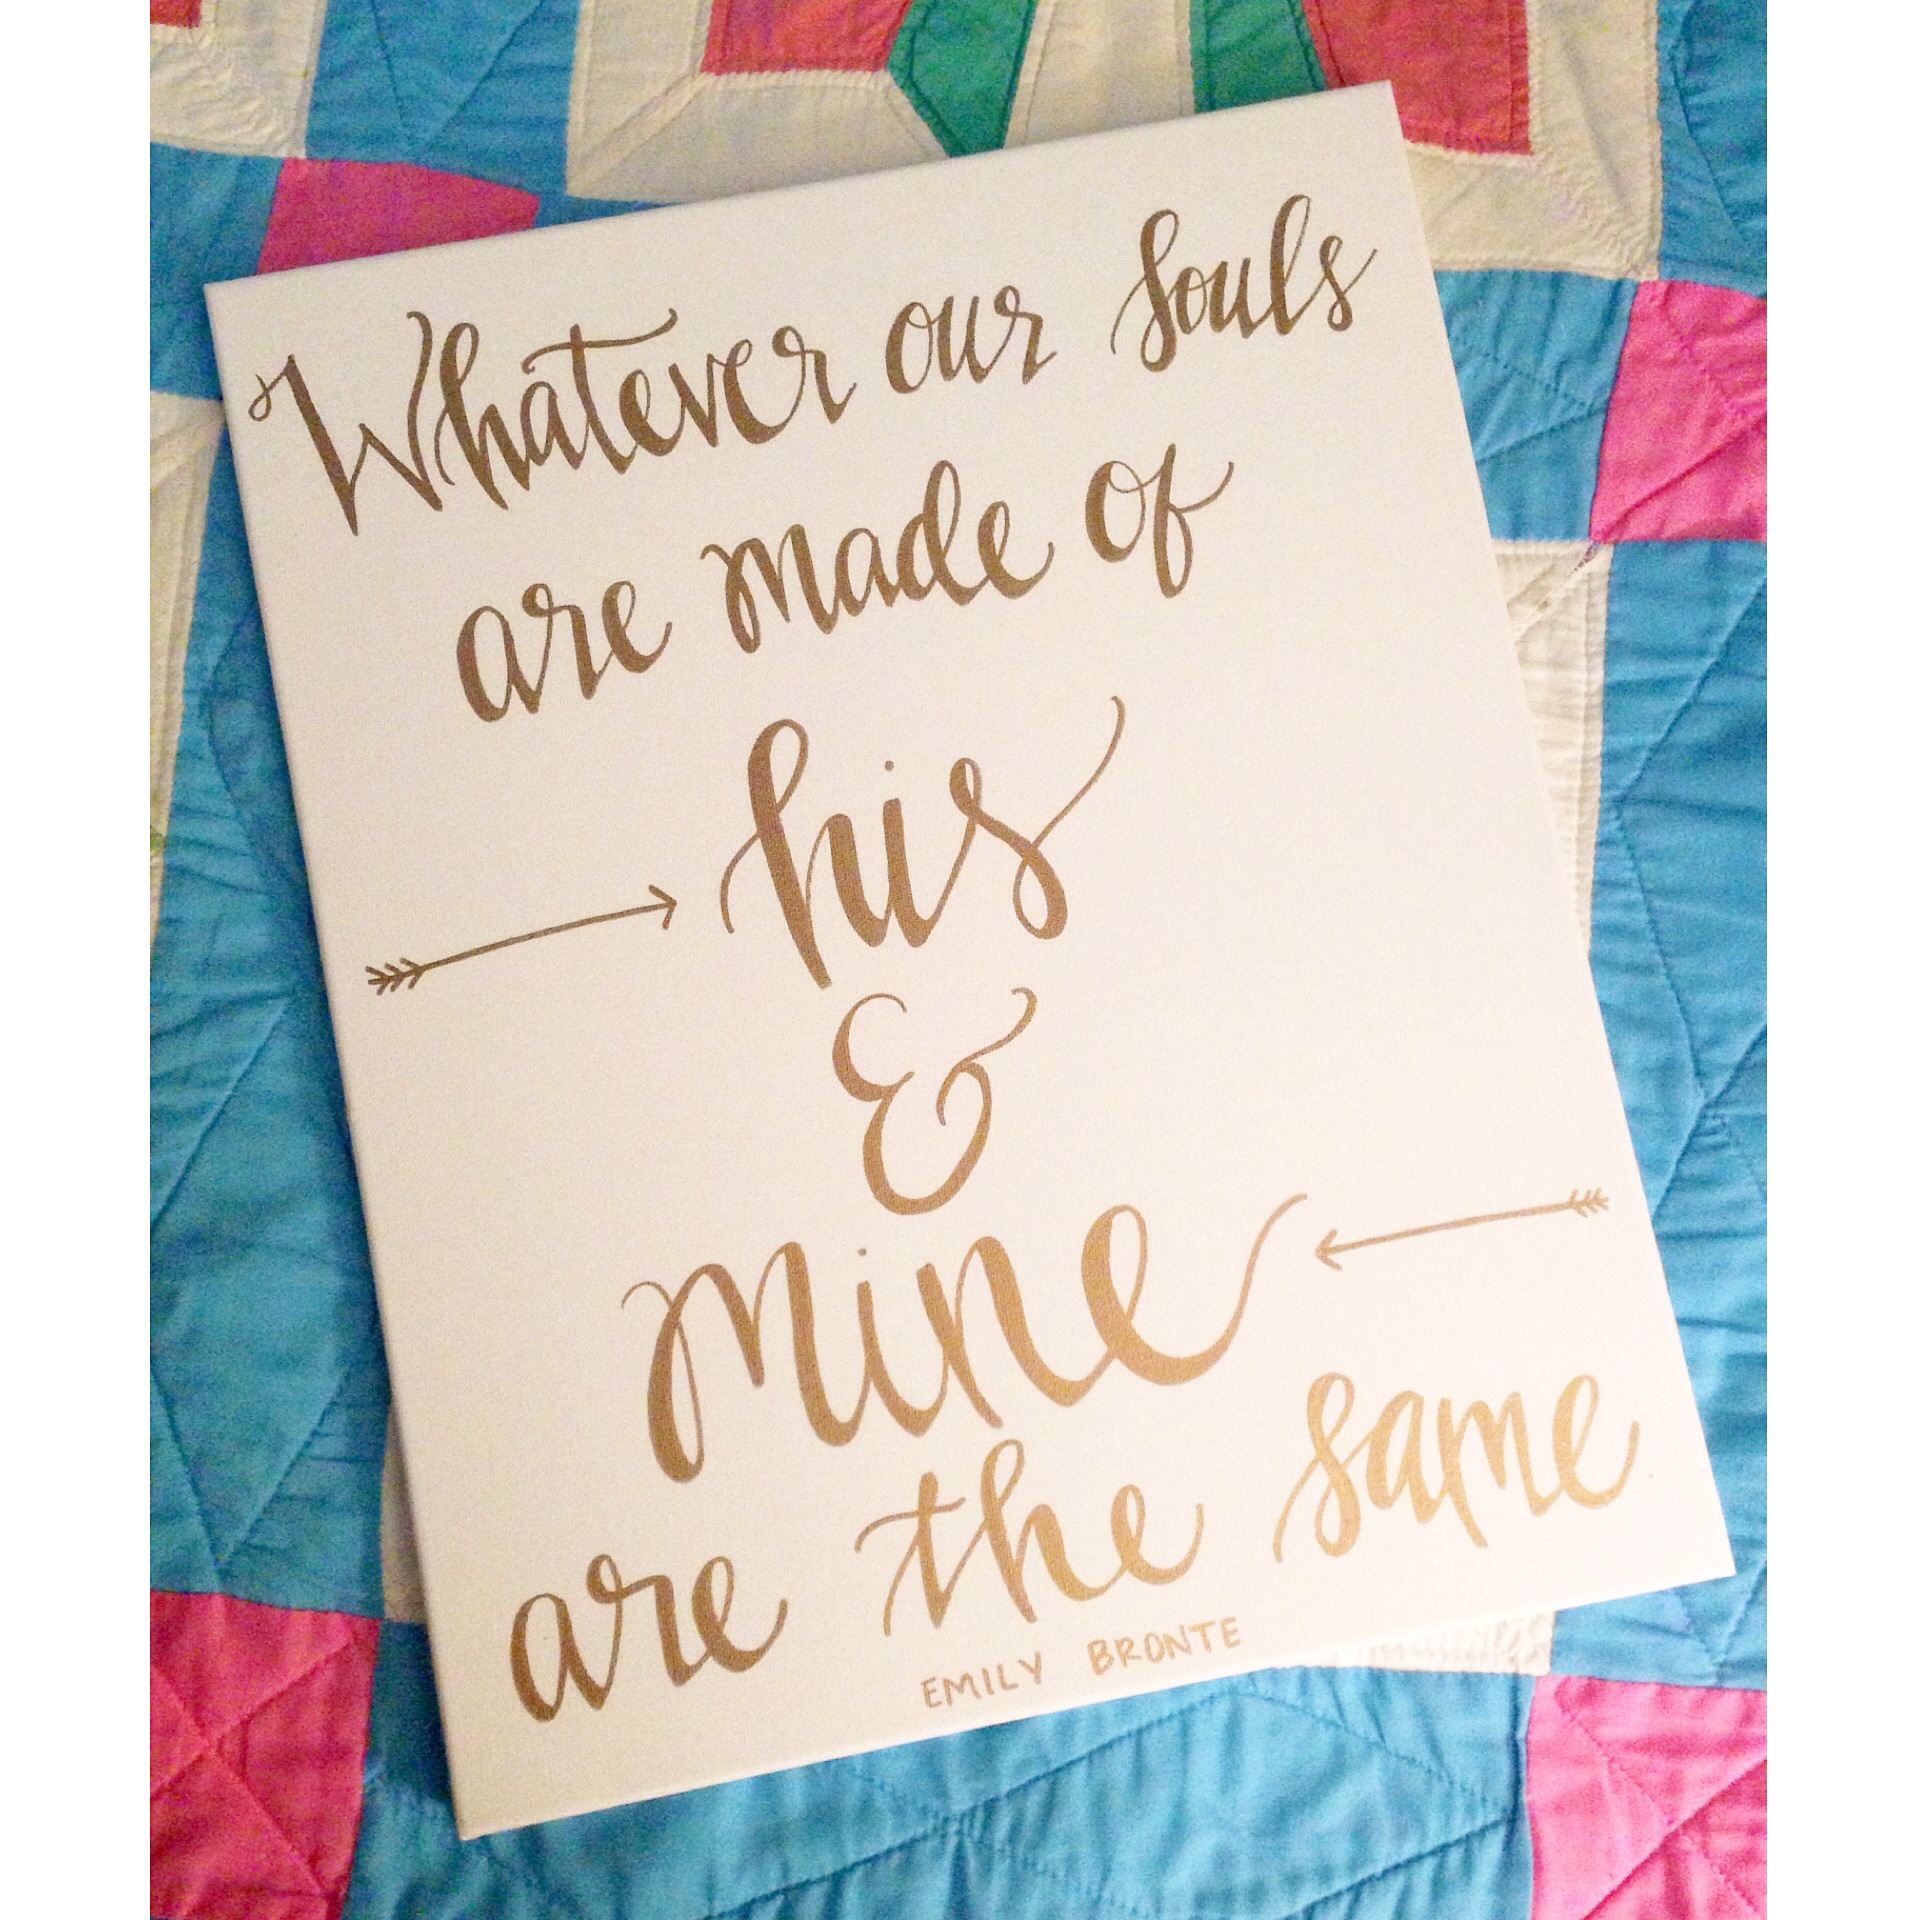 Whatever our souls
are made of
his
&
mine
are the same
EMILY BRONTE